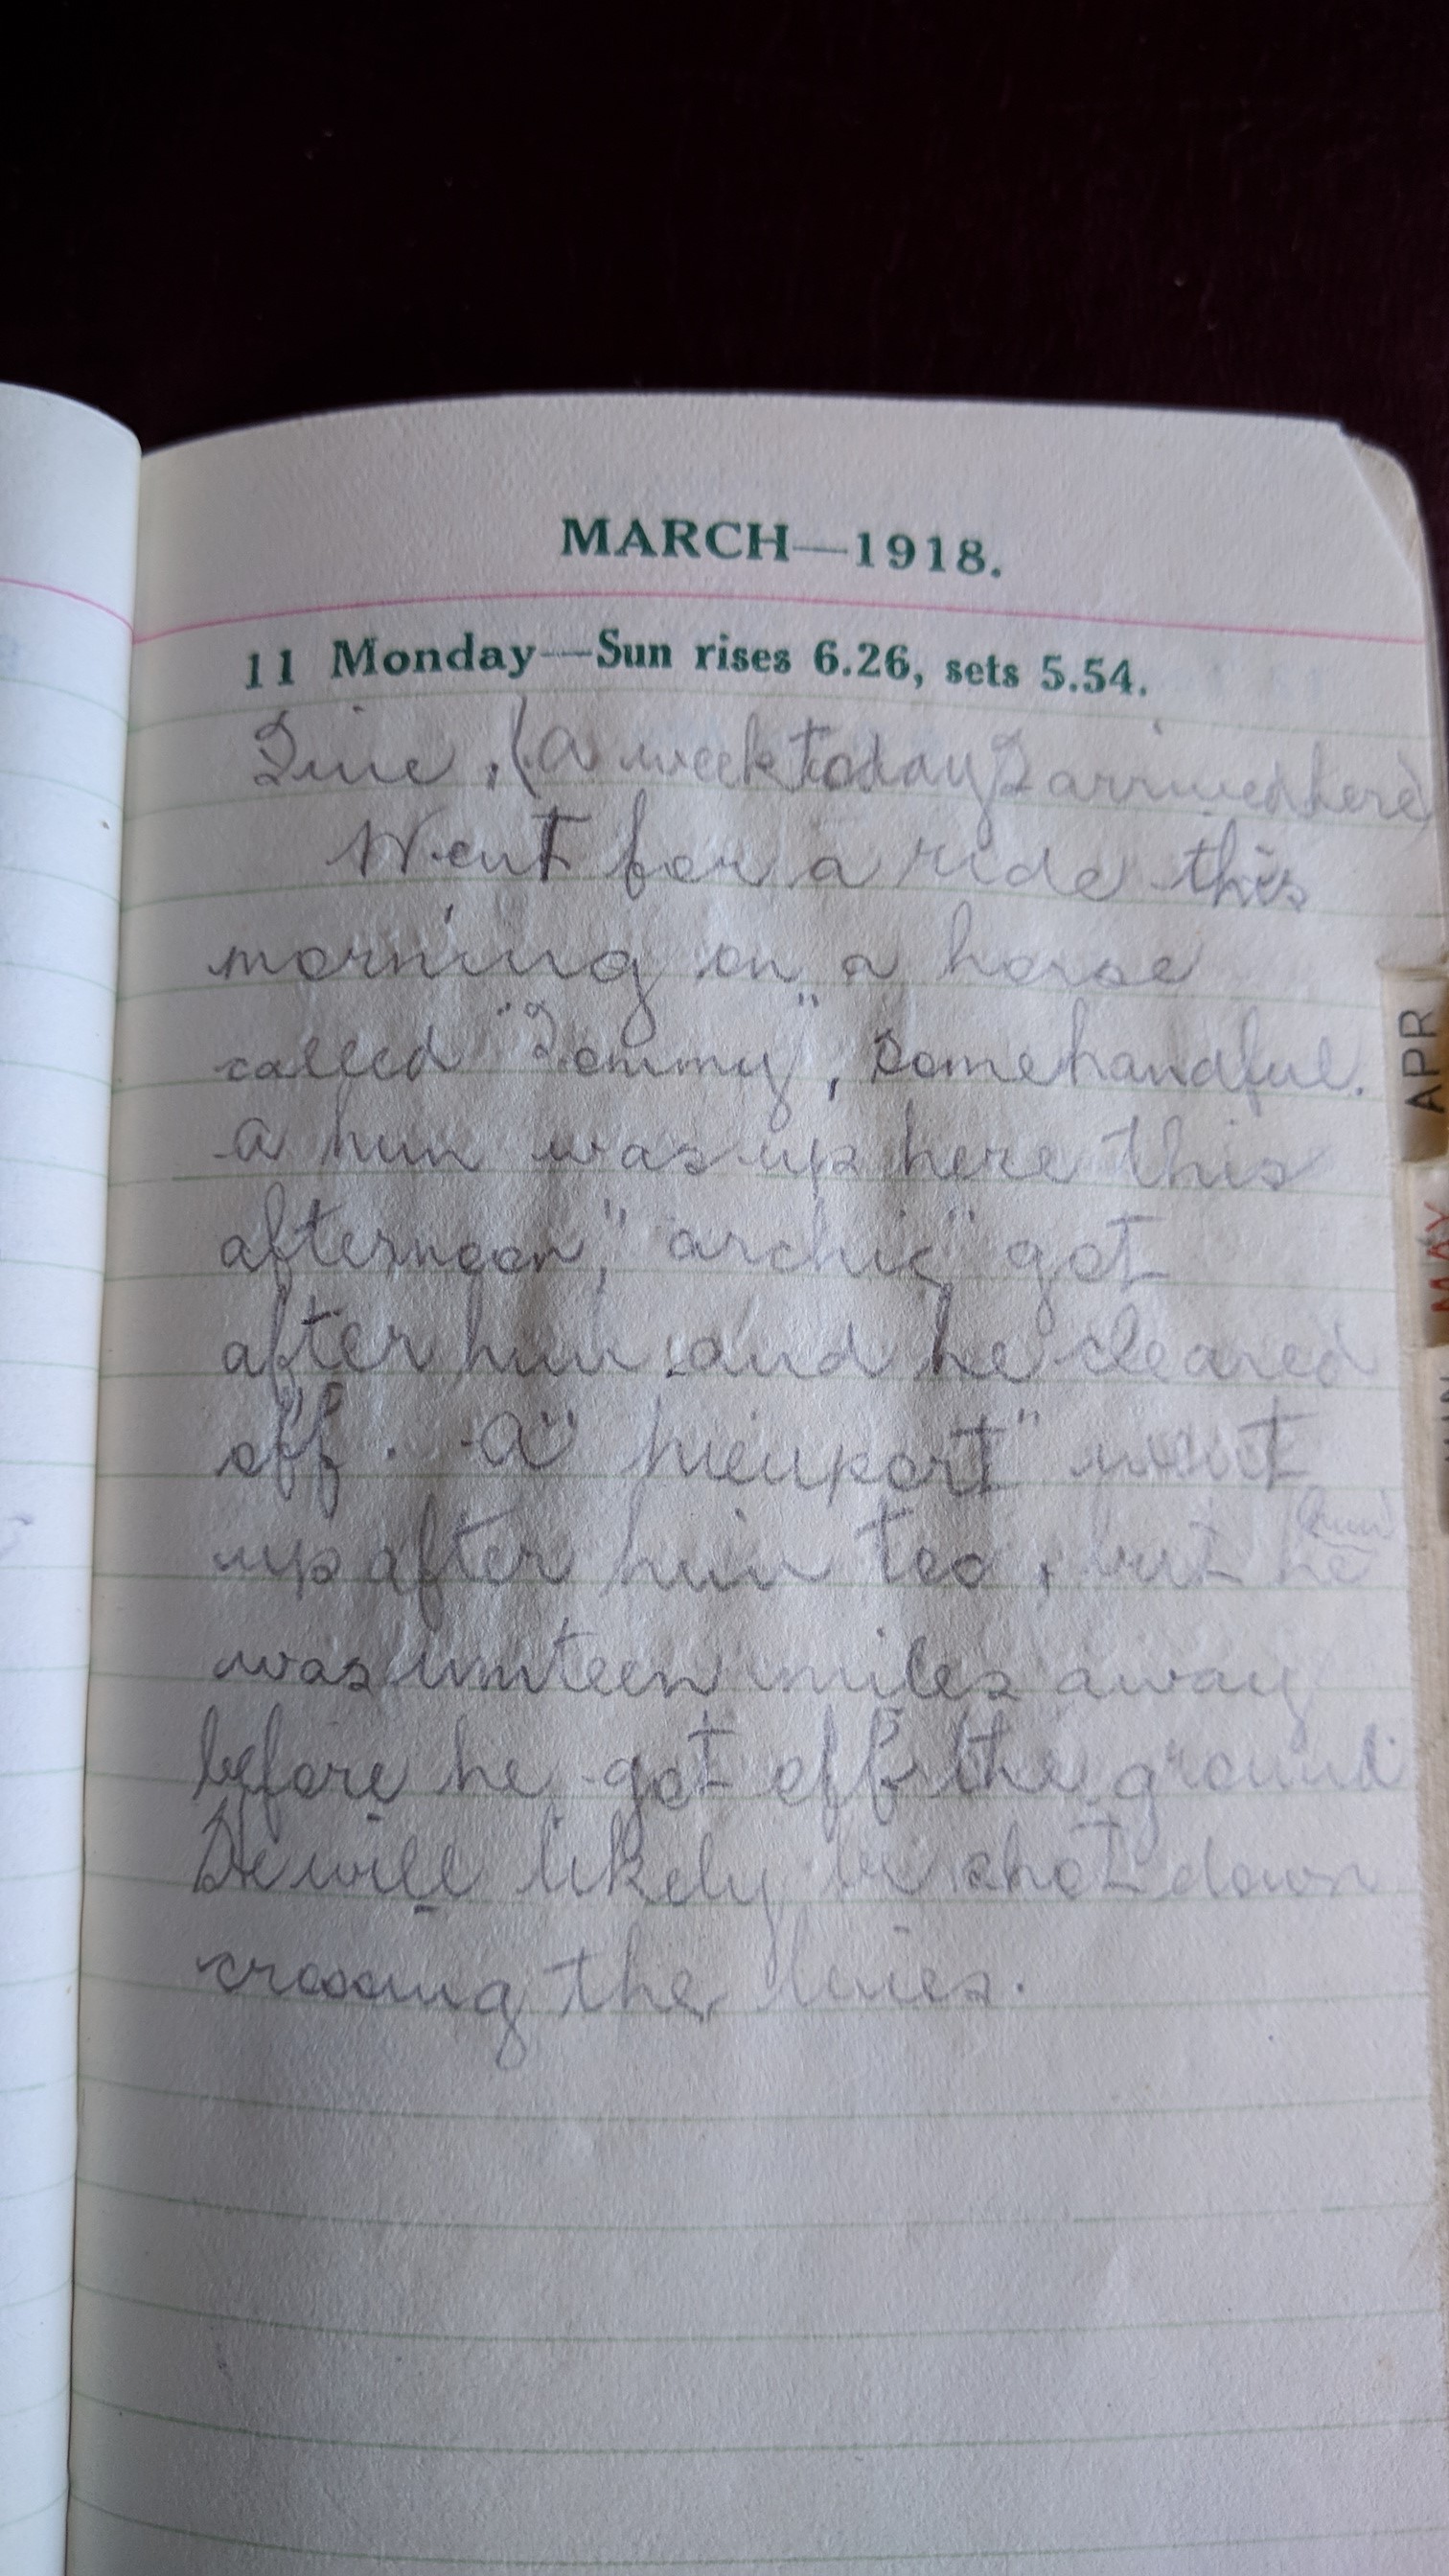 MARCH—1918.
11 Monday—Sun rises 6.26, sets 5.54.
Fine, (A week today I arrived here)
Went for a ride this
morning on a horse
called "Tommy", some handful.
A hun was up here this
afternoon, "archie" got
after him and he cleared
off. A "nieuport" went
(hun)
up after him too, but he
was umteen miles away
before he got off the ground
He will likely be shot down
crossing the lines.
APR
MAY
JUN